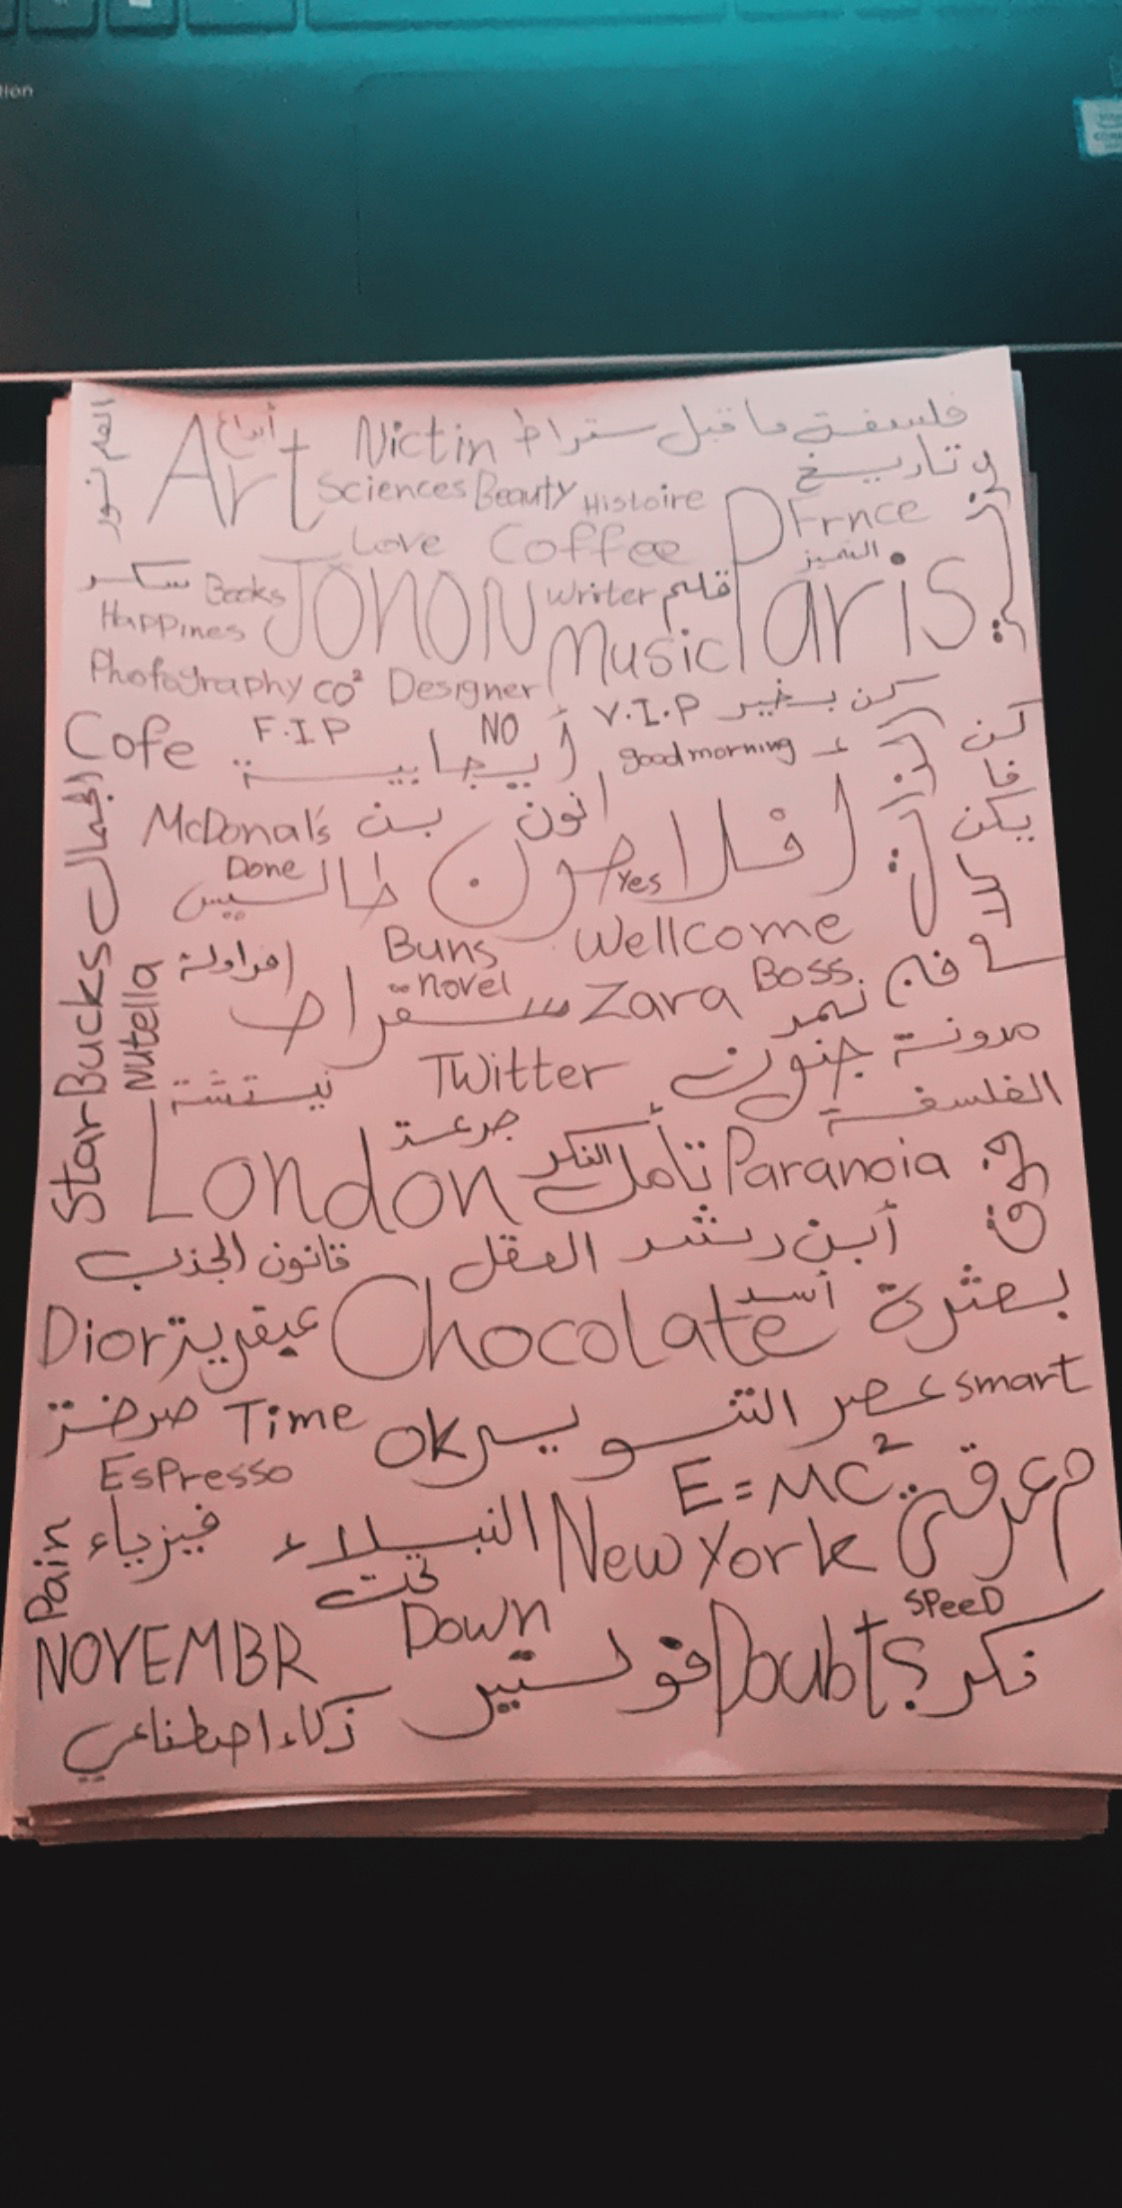 فلسفة ما قبل سقراط Nictin Art أبداع
العلم نور
و تاريخ
Sciences Beauty Histoire
Frnce
Love Coffee
التميز
Paris
سكر Books JONON writer قلم
Happines
Music
Photography co² Designer
كن بخير V.I.P NO F.I.P Cofe
أيجابية
good morning
كن
فا
يكن
McDonal's بن
نون
افلاطون
Yes
Done
طاليس
الجمال
StarBucks
Nutella
Wellcome
Buns
novel
فراولة
سقراط Zara Boss
نمر
مدونة جنون
Twitter
نيتشة
الفلسفة
جرعة
London تأمل الفكر Paranoia
أبن رشد العقل
قانون الجذب
بعثرة
أسد
Chocolate
عبقرية Dior
smart
عصر التنوير ok
Time
Espresso
E=MC²
معرفة
New York
النبلاء
فيزياء
Pain
تحت
Down
SPeeD
NOVEMBR
فكر؟ Doubt فولتير
ذكاء اصطناعي